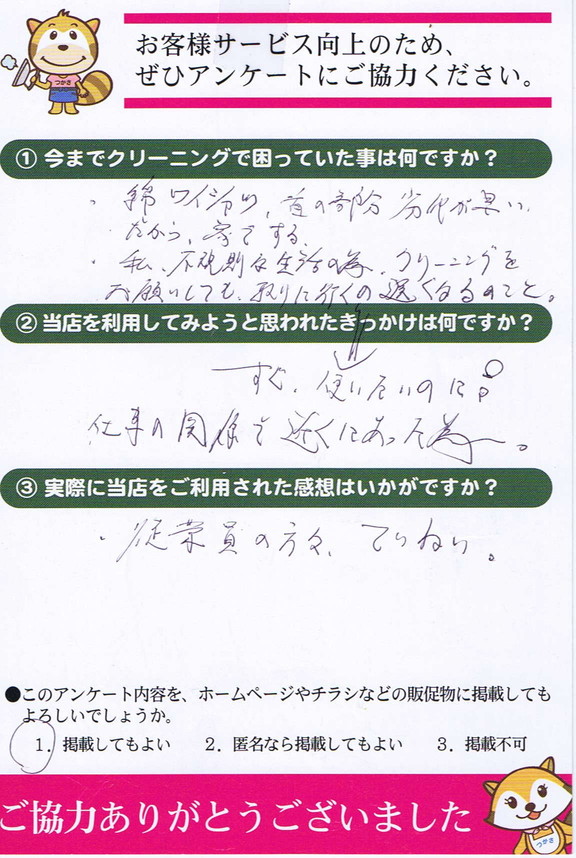 お客様サービス向上のため、
ぜひアンケートにご協力ください。
つかさ
① 今までクリーニングで困っていた事は何ですか？
・綿ワイシャツ、首の部分 劣化が早い
だから、家でする。
・私、不規則な生活の為、クリーニングを
お願いしても、取りに行くの遅くなるのこと。
② 当店を利用してみようと思われたきっかけは何ですか？
すぐ、使いたいのに
仕事の関係で近くにあった為。
③ 実際に当店をご利用された感想はいかがですか？
・従業員の方々、ていねい。
●このアンケート内容を、ホームページやチラシなどの販促物に掲載しても
よろしいでしょうか。
1．掲載してもよい　2．匿名なら掲載してもよい　3．掲載不可
ご協力ありがとうございました
つかさ